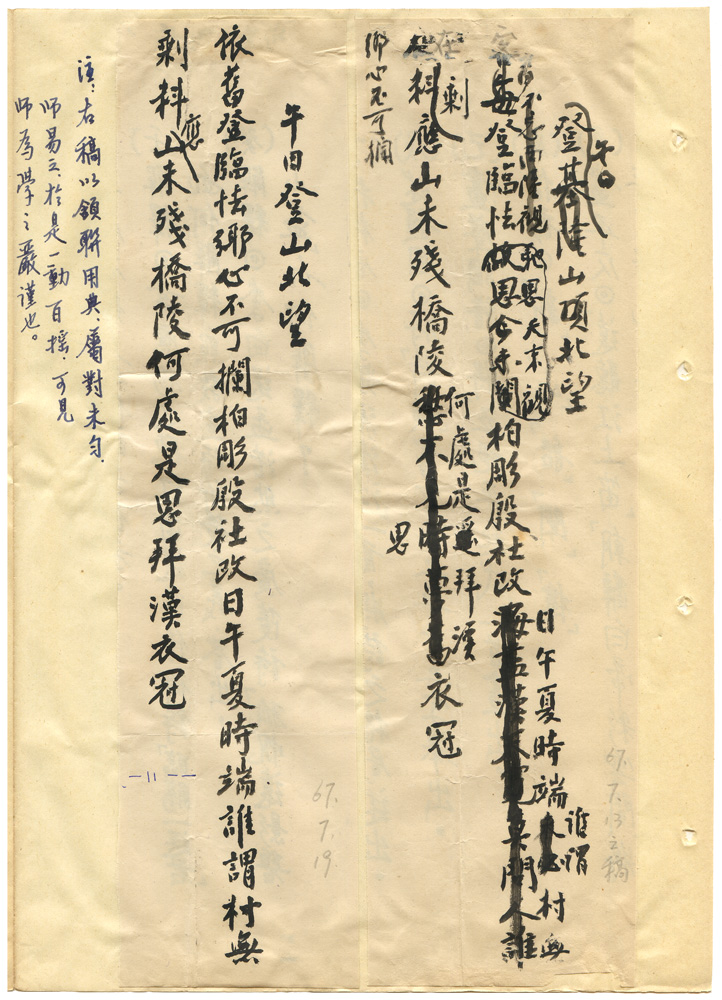 午日
登基隆山頂北望
每登臨怯
柏彫殷社改
日午夏時端誰謂
村無
剩
料應山未殘橋陵
何處是
思
拜漢
衣冠
鄉心不可攔
午日登山北望
依舊登臨怯鄉心不可攔柏彫殷社改日午夏時端誰謂村無
剩料山未殘橋陵何處是思拜漢衣冠
應
注：右稿以領聯用典、屬對未勻.
師易之、於是一動百搖.可見
師為學之嚴謹也。
-11--
67.
7.
13之稿
67.
7.
19